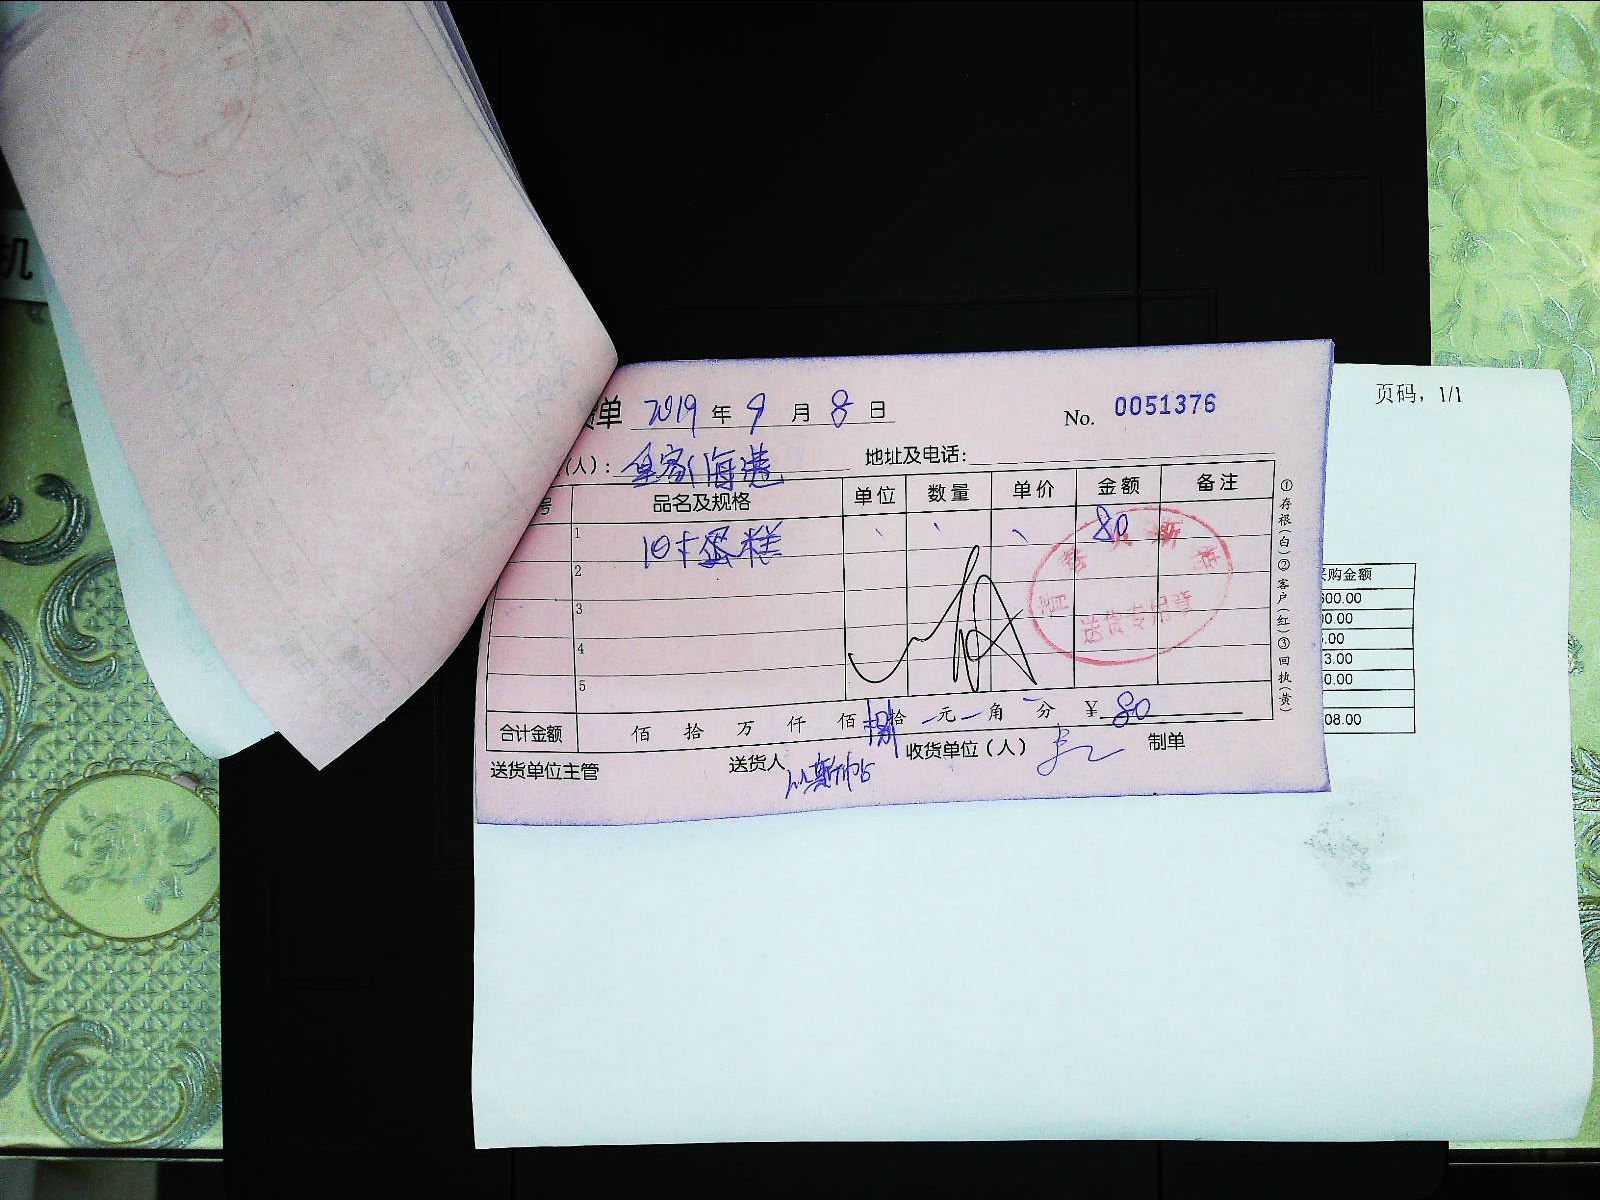 机
页码, 1/1
单 2019 年 9 月 8 日 No. 0051376
(人): 皇家海港 地址及电话:
号 品名及规格 单位 数量 单价 金额 备注
1 10寸蛋糕 、 、 、 80
2
3
4
5
送货专用章
合计金额 佰 拾 万 仟 佰 捌拾 元 角 分 ¥ 80
送货单位主管 送货人 收货单位(人) 制单
①存根(白)②客户(红)③回执(黄)
购金额
600.00
00.00
.00
3.00
0.00
08.00